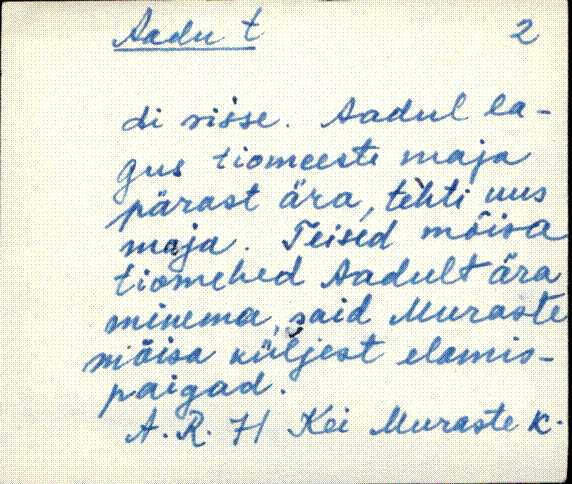 Aadu t 2
di sisse. Aadul la-
gus tiomeeste maja
pärast ära, tehti uus
maja. Teised mõisa
tiomehed Aadult ära
minema, said Muraste
mõisa küljest elamis-
paigad.
A. R. H Kei Muraste k.